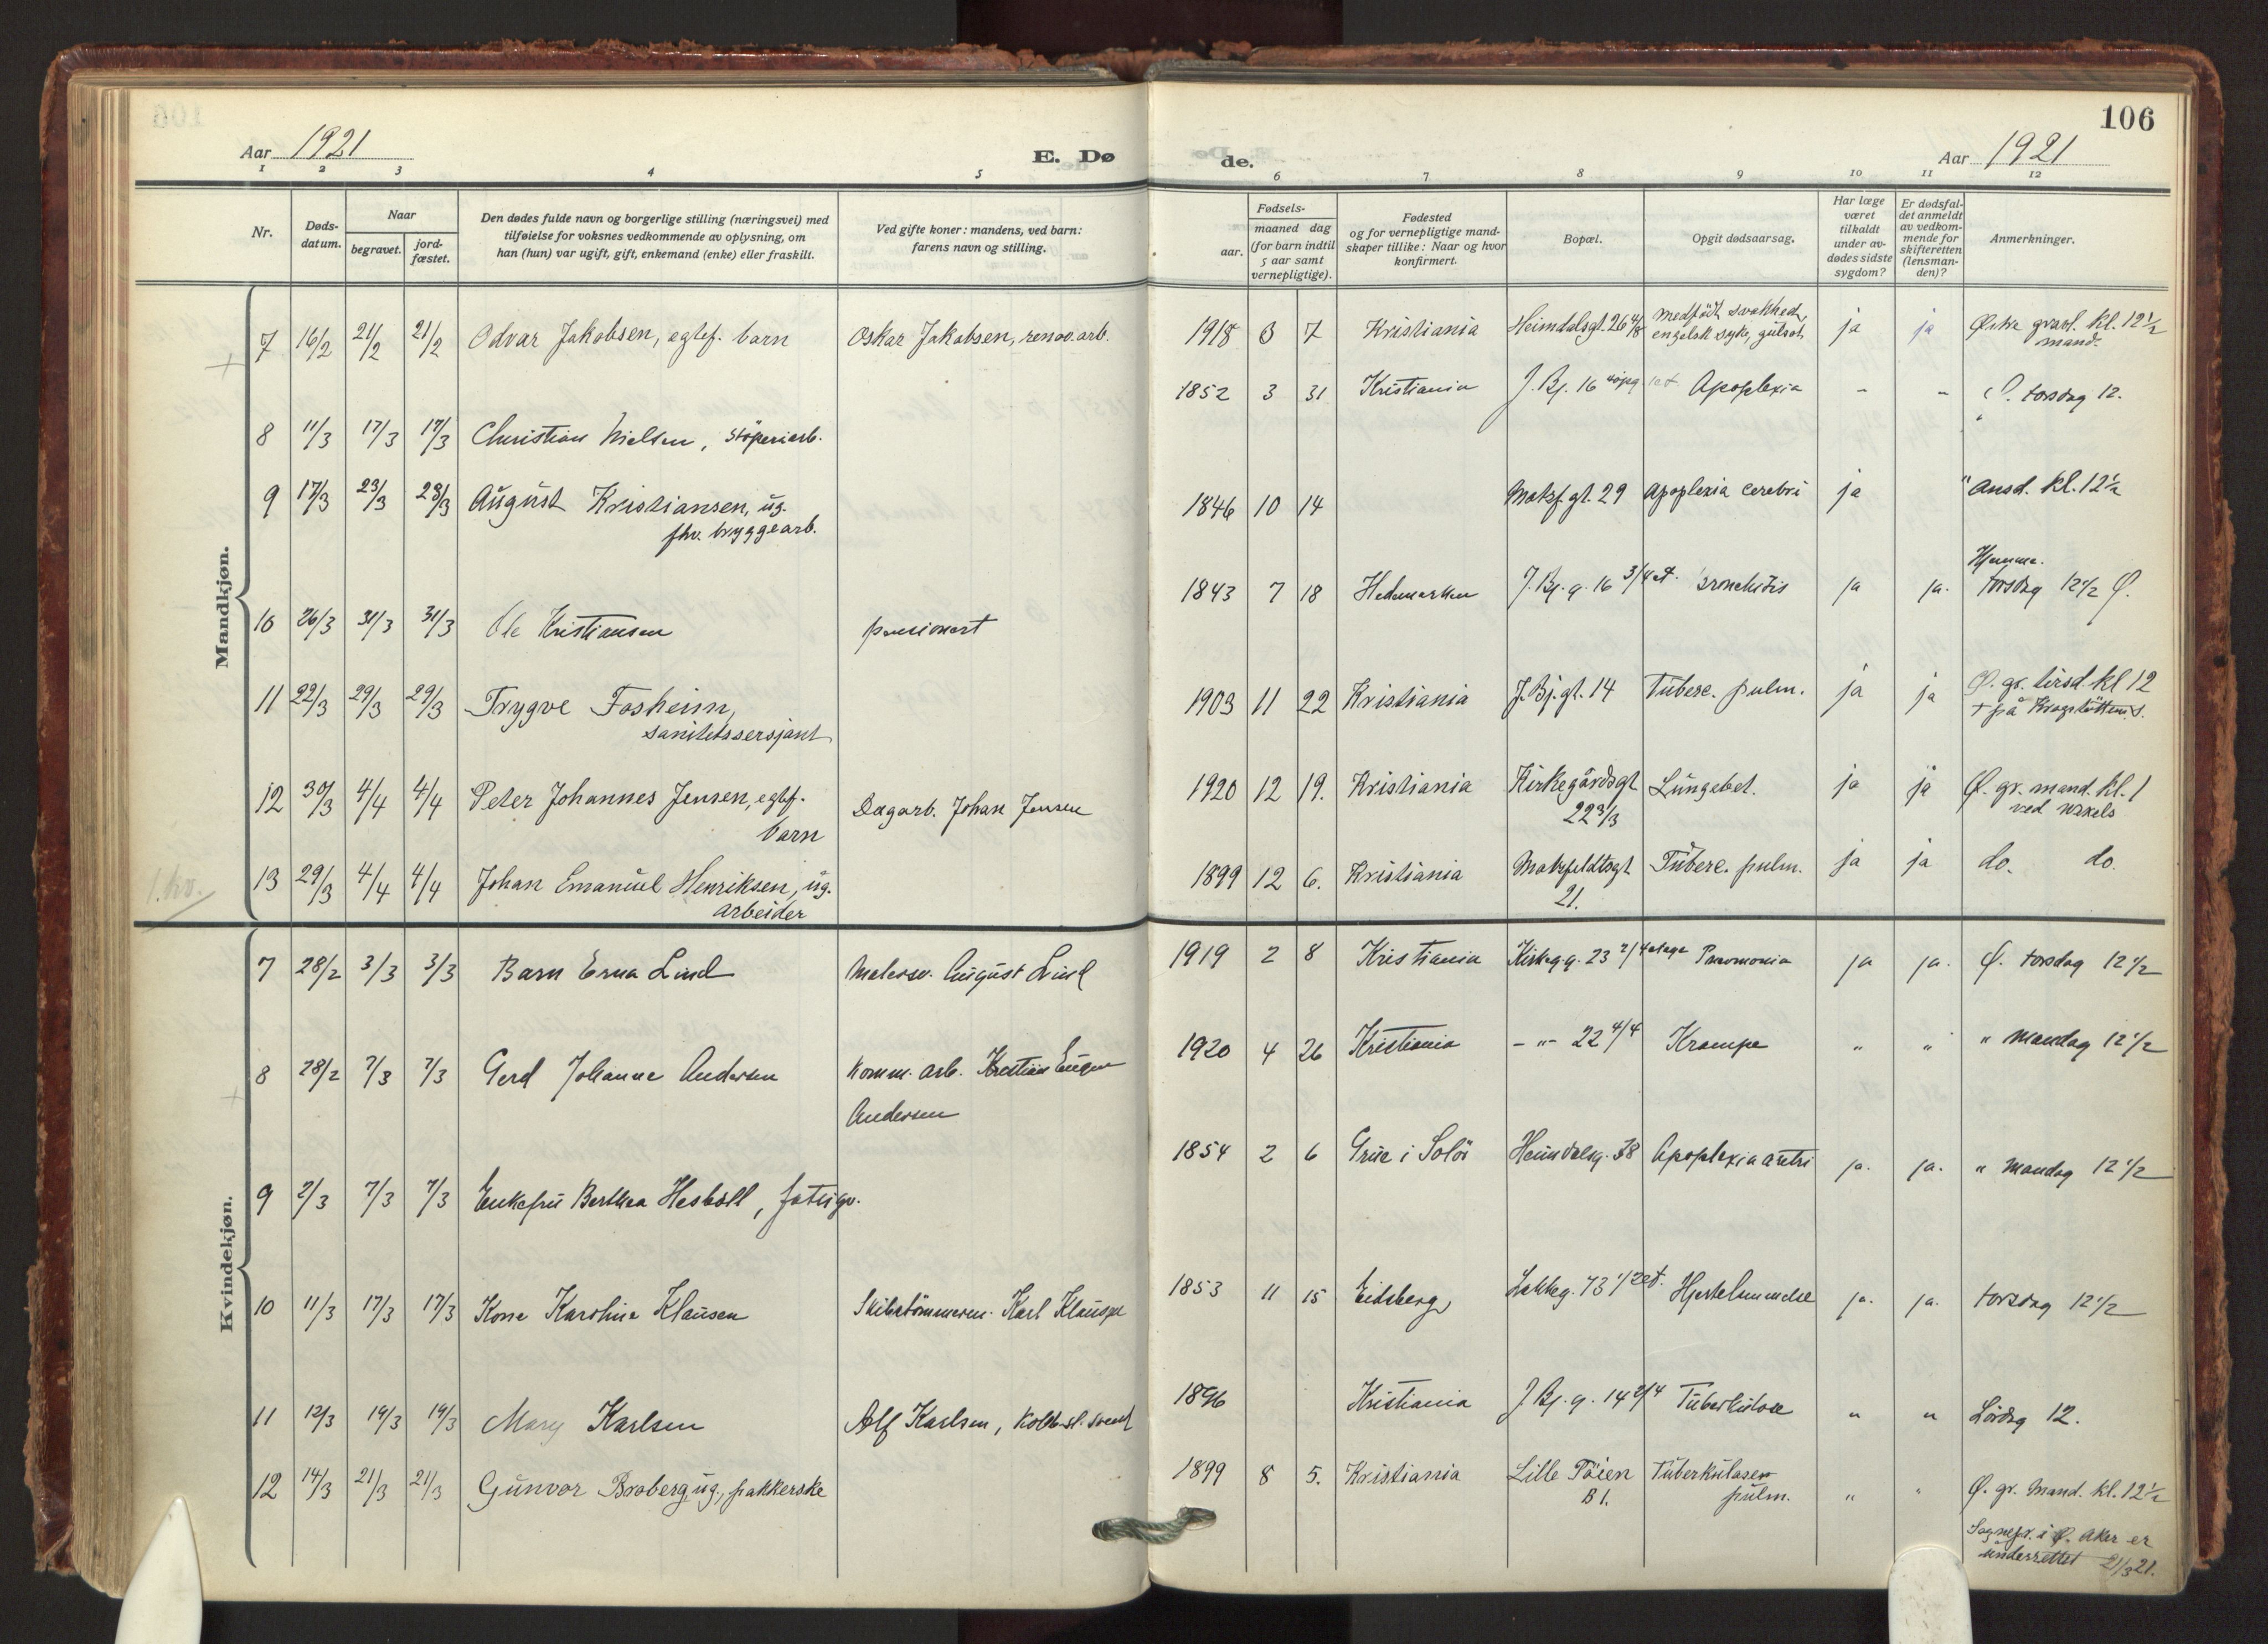 106
Aar 1921 E. Dø de. Aar 1921
1 2 3 4 5 6 7 8 9 10 11 12
Nr. Døds-datum. Naar begravet. jord-fæstet. Den dødes fulde navn og borgerlige stilling (næringsvei) med tilføielse for voksnes vedkommende av oplysning, om han (hun) var ugift, gift, enkemand (enke) eller fraskilt. Ved gifte koner: mandens, ved barn: farens navn og stilling. Fødsels- aar. maaned dag (for barn indtil 5 aar samt vernepligtige). Fødested og for vernepligtige mand-skaper tillike: Naar og hvor konfirmert. Bopæl. Opgit dødsaarsag. Har læge været tilkaldt under av-dødes sidste sygdom? Er dødsfal-det anmeldt av vedkom-mende for skifteretten (lensman-den)? Anmerkninger.
Mandkjøn.
7 16/2 21/2 21/2 Odvar Jakobsen, egtef. barn Oskar Jakobsen, renov.arb. 1918 3 7 Kristiania Heimdalsgt. 26 4/8 medfödt svakhed, engelsk syke, gulsot ja ja Østre gravl. kl. 12½ mand.
8 11/3 17/3 17/3 Christian Nielsen, støperiarb. 1852 3 31 Kristiania J. Bj. 16 Apoplexia - - Ø. torsdag 12.
9 17/3 23/3 23/3 August Kristiansen, ug. fhv. bryggearb. 1846 10 14 Motzf.gt. 29 Apoplexia cerebri ja " onsd. kl. 12½
10 26/3 31/3 31/3 Ole Kristiansen pensionert 1843 7 18 Hedemarken J. Bj. g. 16 3/4 et. Bronchitis ja ja. Hjemme. torsdag 12½ Ø.
11 22/3 29/3 29/3 Trygve Fosheim, sanitetssersjant 1903 11 22 Kristiania J. Bj. gt. 14 Tuberc. pulm. ja ja Ø. gr. tirsd. kl 12 + på Krogstötten s.
12 30/3 4/4 4/4 Peter Johannes Jensen, egtef. barn Dagarb. Johan Jensen 1920 12 19. Kristiania Kirkegårdsgt 22 3/3 Lungebet. ja ja Ø. gr. mand. kl. 1 ved
1. kv. 13 29/3 4/4 4/4 Johan Emanuel Henriksen, ug. arbeider 1899 12 6. Kristiania Motzfeldtsgt 21. Tuberc. pulm. ja ja do. do.
Kvindekjøn.
7 28/2 3/3 3/3 Barn Erna Lind Malersv. August Lind 1919 2 8 Kristiania Kirkeg.g. 23 2/4 etage Pneumonia ja ja. Ø. torsdag 12½
8 28/2 7/3 7/3 Gerd Johanne Andersen Komm. arb. Kristian Eugen Andersen 1920 4 26 Kristiania - " - 22 4/4 Krampe " " " Mandag 12½
9 2/3 7/3 7/3 Enkefru Berthea Hesböll, fattigv. 1854 2 6 Grue i Solör Heimdalsg. 38 Apoplexia ja. ja. " Mandag 12½
10 11/3 17/3 17/3 Kone Karoline Klausen Skibstömmerm. Karl Klausen 1853 11 15 Eidsberg Lakkeg. 73 1/2 et. Hjertelammelse ja. ja. torsdag 12½
11 12/3 19/3 19/3 Mary Karlsen Alf Karlsen, 1896 Kristiania J. Bj. g. 14 2/4 Tuberkulose " " Lördag 12.
12 14/3 21/3 21/3 Gunvor Broberg, ug., pakkerske 1899 8 5. Kristiania Lille Töien B 1. Tuberkulosen pulm. " " Ø. gr. Mand. kl. 12½
Sognepr. i Ø. Aker er underrettet 21/3 21.